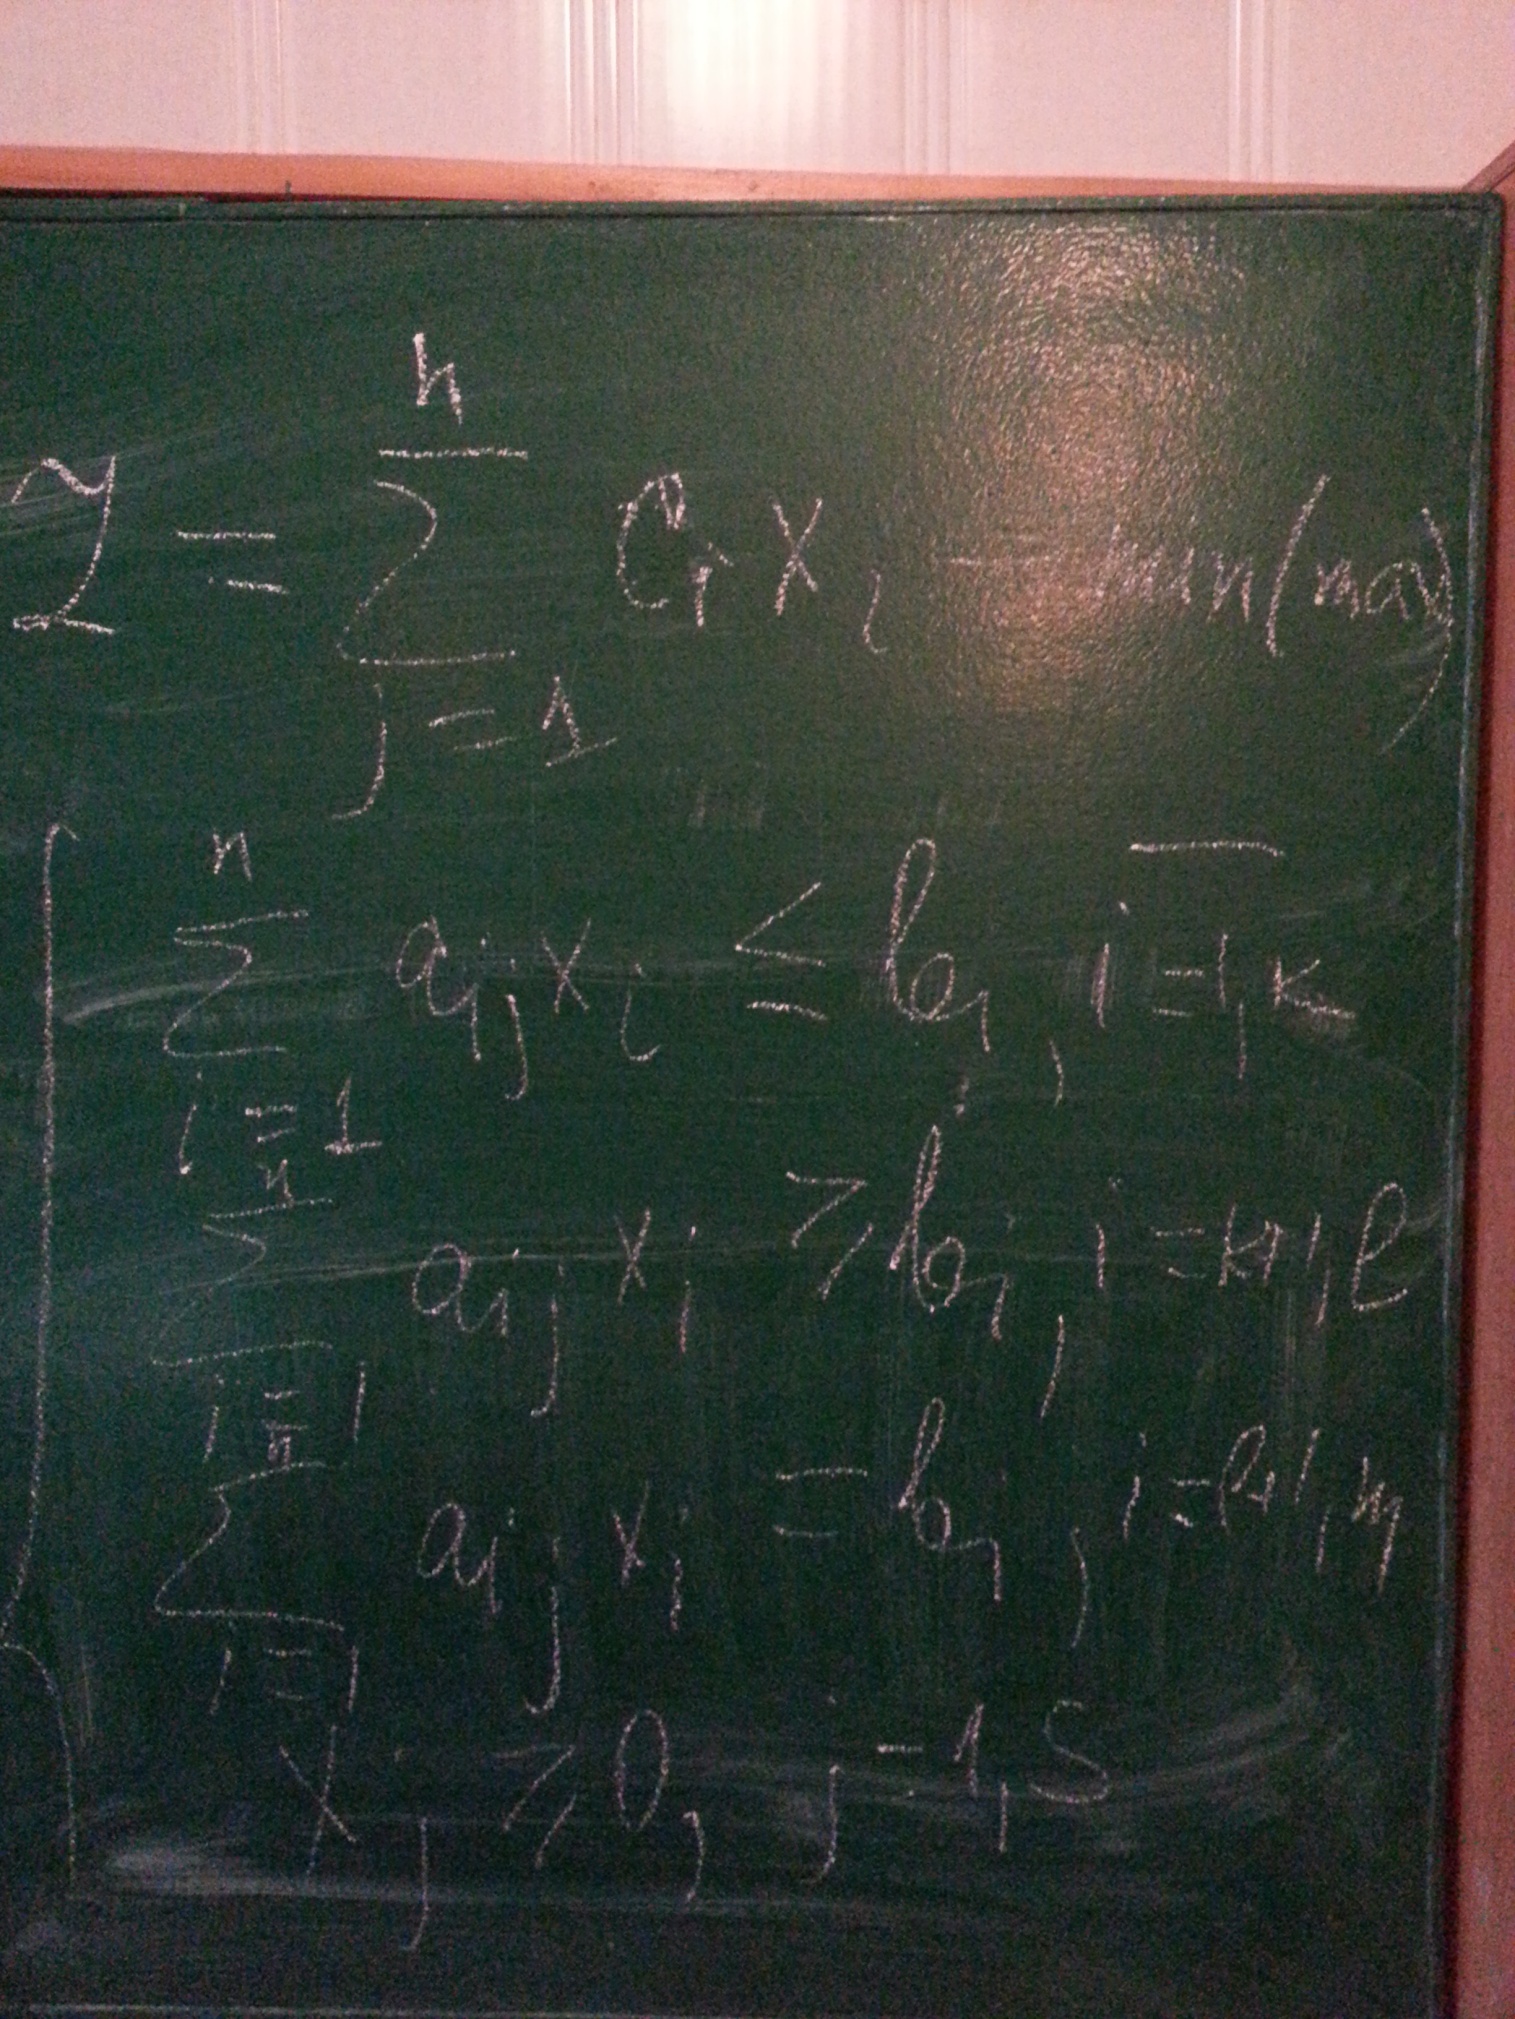 Z = ∑_{j=1}^{n} C_i x_i – min(max)
∑_{i=1}^{n} a_{ij} x_i ≤ b_i, i = \overline{1,k}
∑_{i=1}^{n} a_{ij} x_i ≥ b_i, i = k+1, l
∑_{i=1}^{n} a_{ij} x_i = b_i, i = l+1, m
x_j ≥ 0, j = 1, s